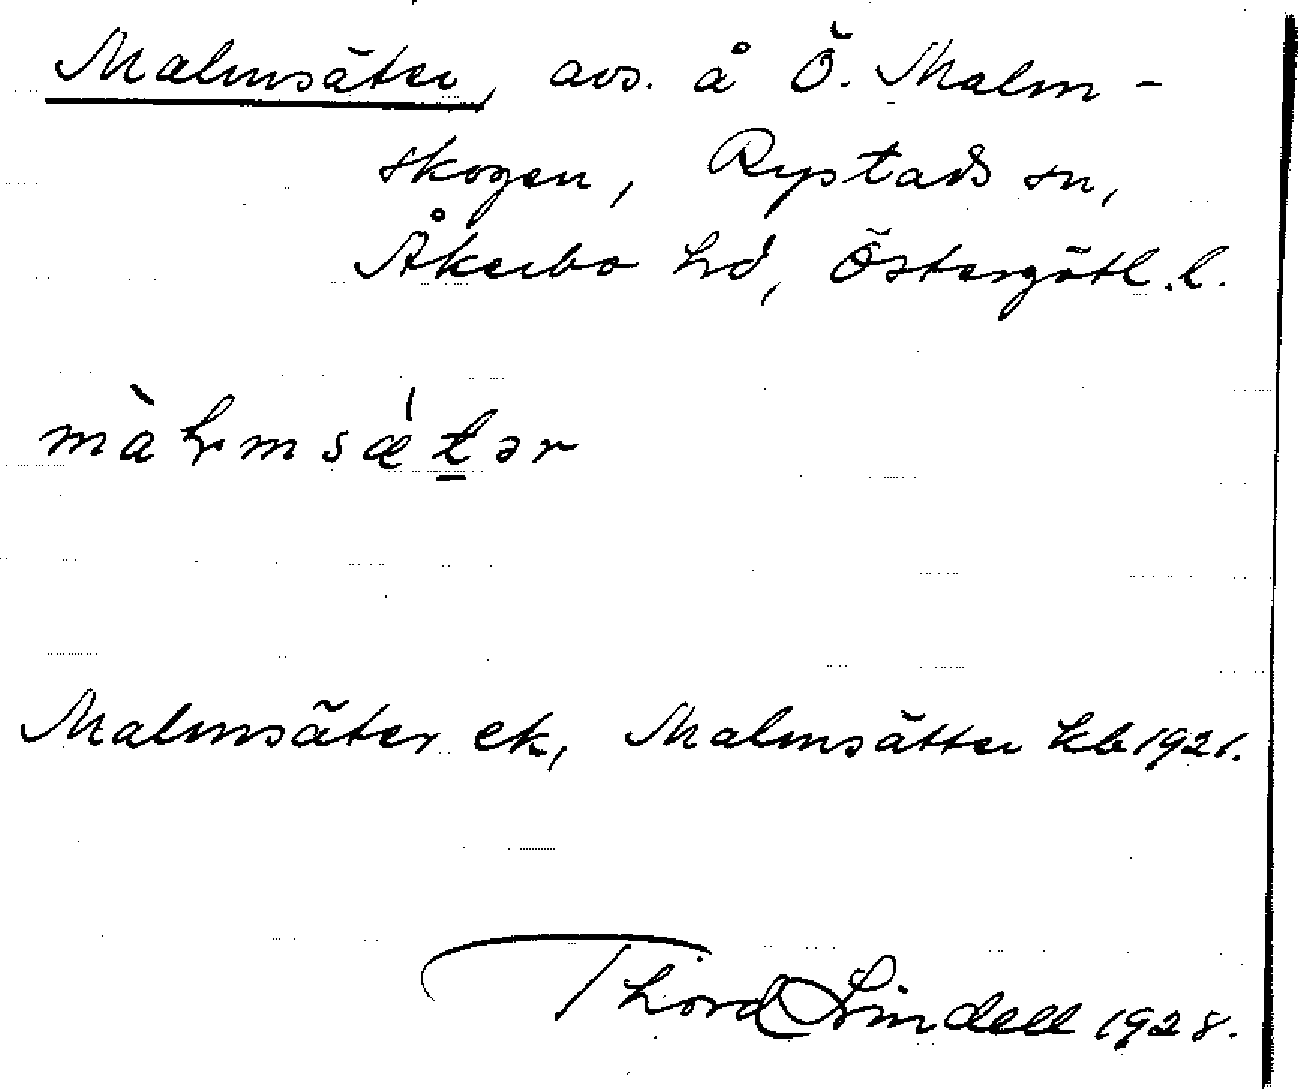 Malmsäter, avs. å Ö. Malm-
skogen, Rystads sn,
Åkerbo hd, Östergötl. l.
Malmsäter ek, Malmsätter kb 1921.
Thord Lindell 1928.